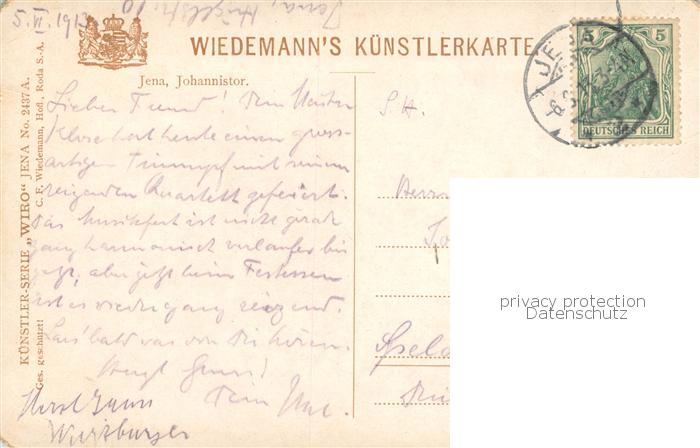 5. VI. 1913
Jena,
WIEDEMANN'S KÜNSTLERKARTE
Jena, Johannistor.
KÜNSTLER-SERIE „WIRO“ JENA No. 2437 A.
Ges. geschützt! C. F. Wiedemann, Hofl., Roda S.-A.
5 5
DEUTSCHES REICH
JE
Lieber Freund! Dein Meister
hat heute einen gross-
artigen Triumpf mit seinem
reizenden Quartett gefeiert.
Das Musikfest ist nicht gerade
ganz harmonisch verlaufen bis
jetzt, aber jetzt beim Festessen
ist es wieder ganz reizend.
Lass' bald was von Dir hören.
Gruss!
Dein
Gruss
Würzburger
S. H.
Herrn
privacy protection
Datenschutz